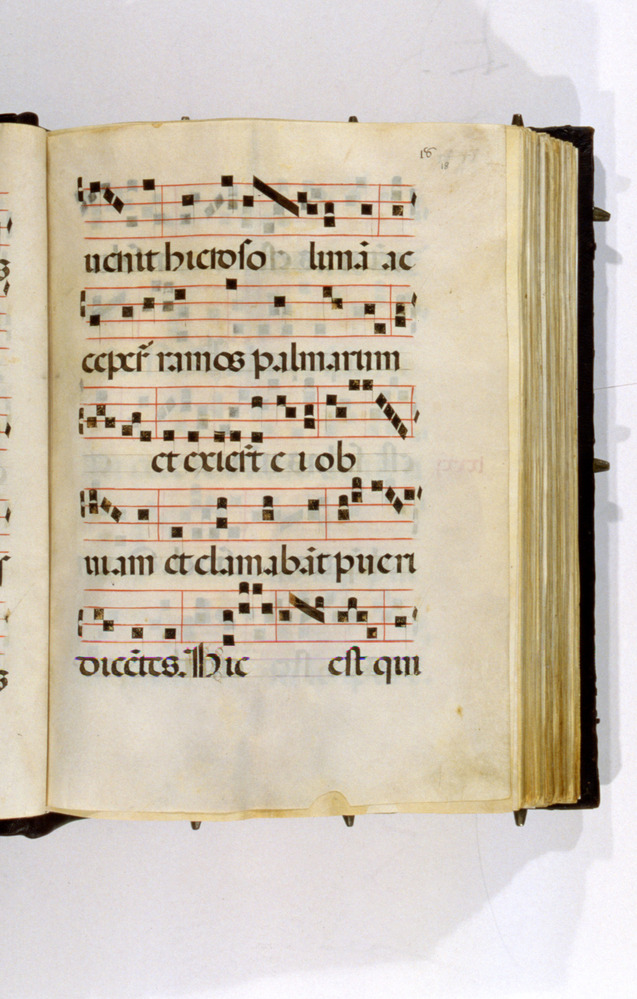 18
18
uenit hieroso limā ac
ceper̄ ramos palmarum
et exiert̄ e i ob
uiam et clamabāt pueri
dicētes. Hic est qui